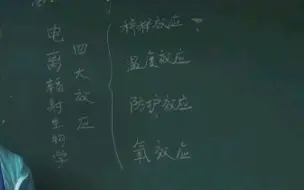 电离辐射生物学
四大效应
稀释效应
温度效应
防护效应
氧效应